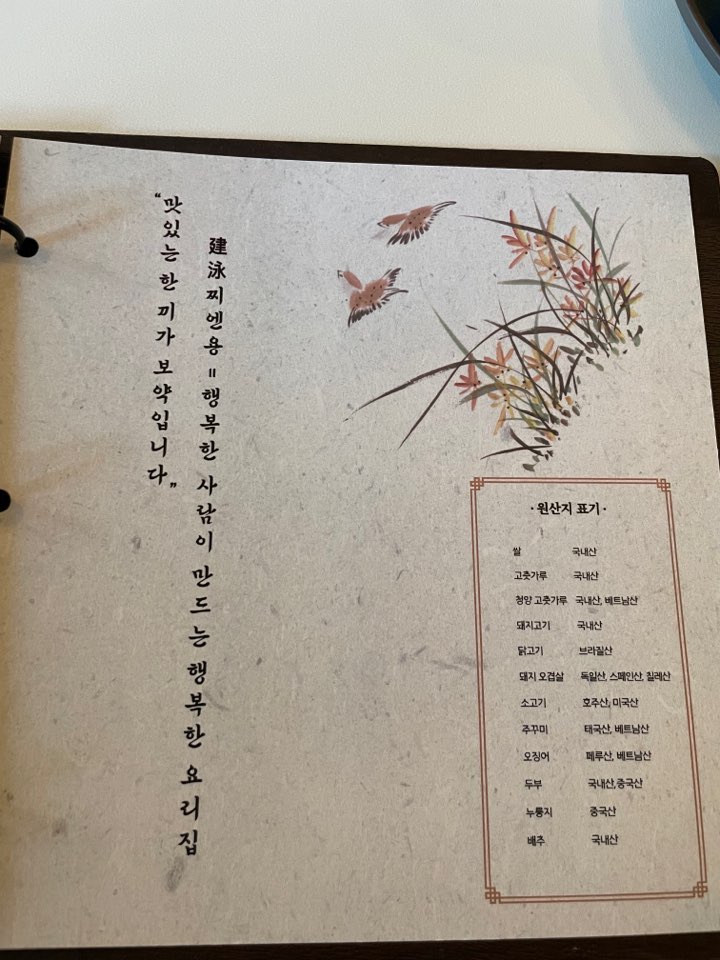 建泳찌엔용 = 행복한 사람이 만드는 행복한 요리집
“맛있는 한 끼가 보약입니다”
· 원산지 표기 ·
쌀 국내산
고춧가루 국내산
청양 고춧가루 국내산, 베트남산
돼지고기 국내산
닭고기 브라질산
돼지 오겹살 독일산, 스페인산, 칠레산
소고기 호주산, 미국산
주꾸미 태국산, 베트남산
오징어 페루산, 베트남산
두부 국내산,중국산
누룽지 중국산
배추 국내산